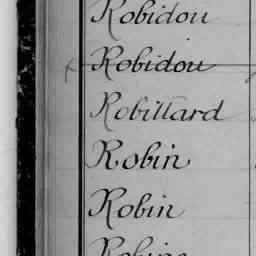 Robidou
Robidou
Robillard
Robin
Robin